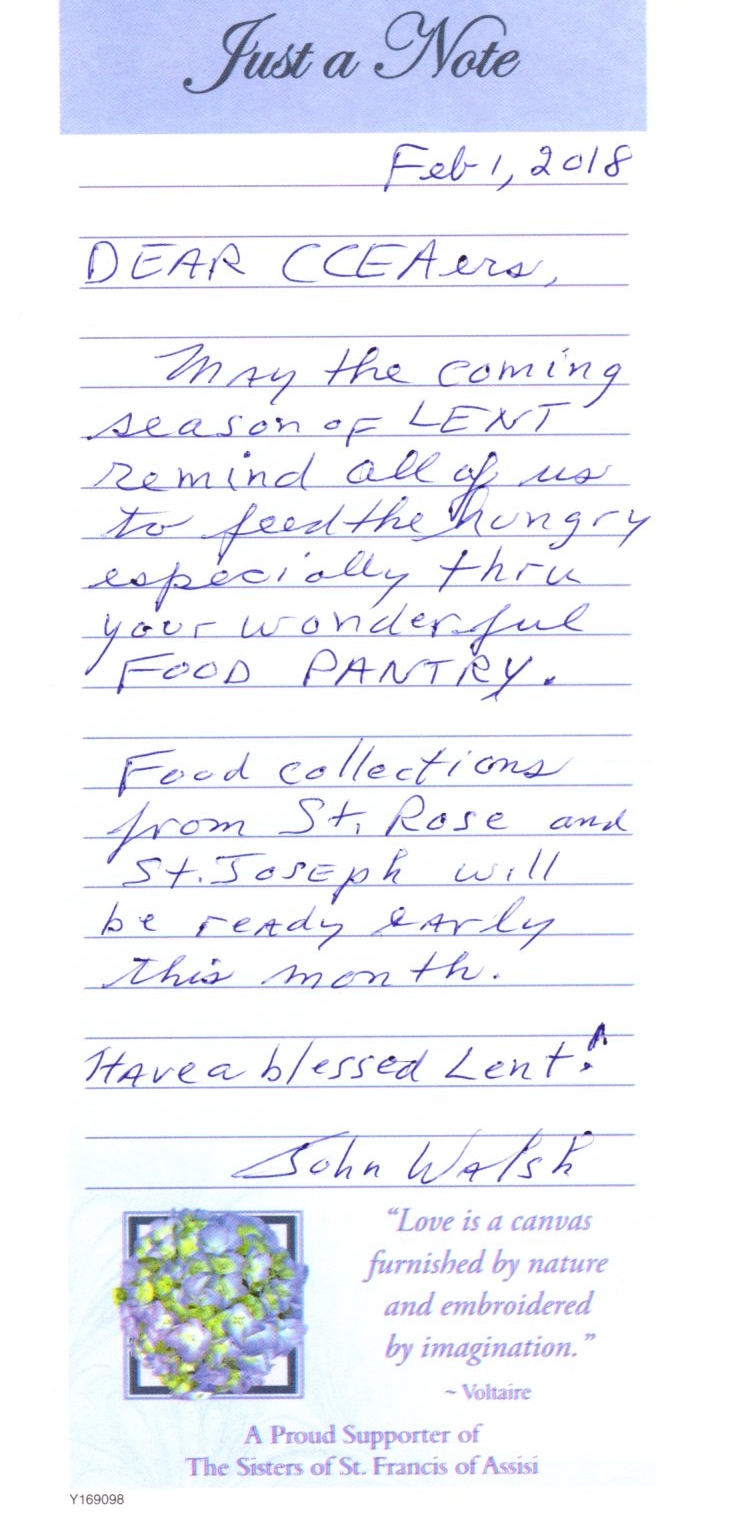 Just a Note
Feb 1, 2018
DEAR CCEAers,
May the coming
season of LENT
remind all of us
to feed the hungry
especially thru
your wonderful
FOOD PANTRY.
Food collections
from St. Rose and
St. Joseph will
be ready early
this month.
Have a blessed Lent!
John Walsh
“Love is a canvas
furnished by nature
and embroidered
by imagination.”
~ Voltaire
A Proud Supporter of
The Sisters of St. Francis of Assisi
Y169098